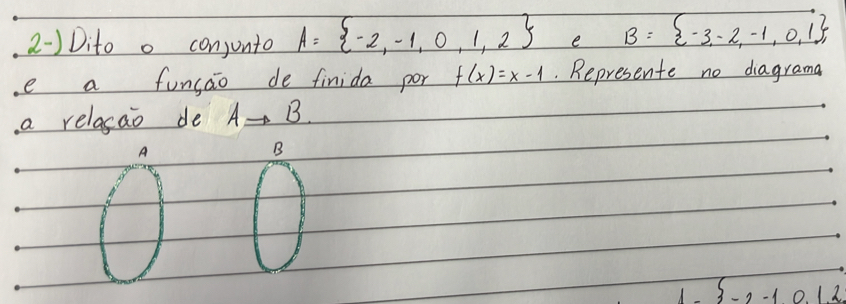 2-) Dito o conjunto A = {-2, -1, 0, 1, 2} e B = {-3, -2, -1, 0, 1},
e a função de finida por f(x) = x - 1. Represente no diagrama
a relação de A → B.
A B
A = {-2 -1, 0, 1, 2